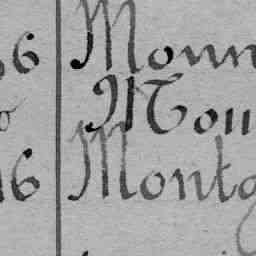 6 Moun
o Mou
16 Montg